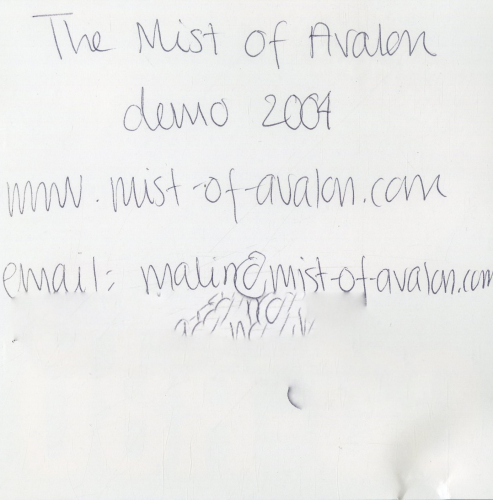 The Mist of Avalon
demo 2004
www.mist-of-avalon.com
email: malin@mist-of-avalon.com